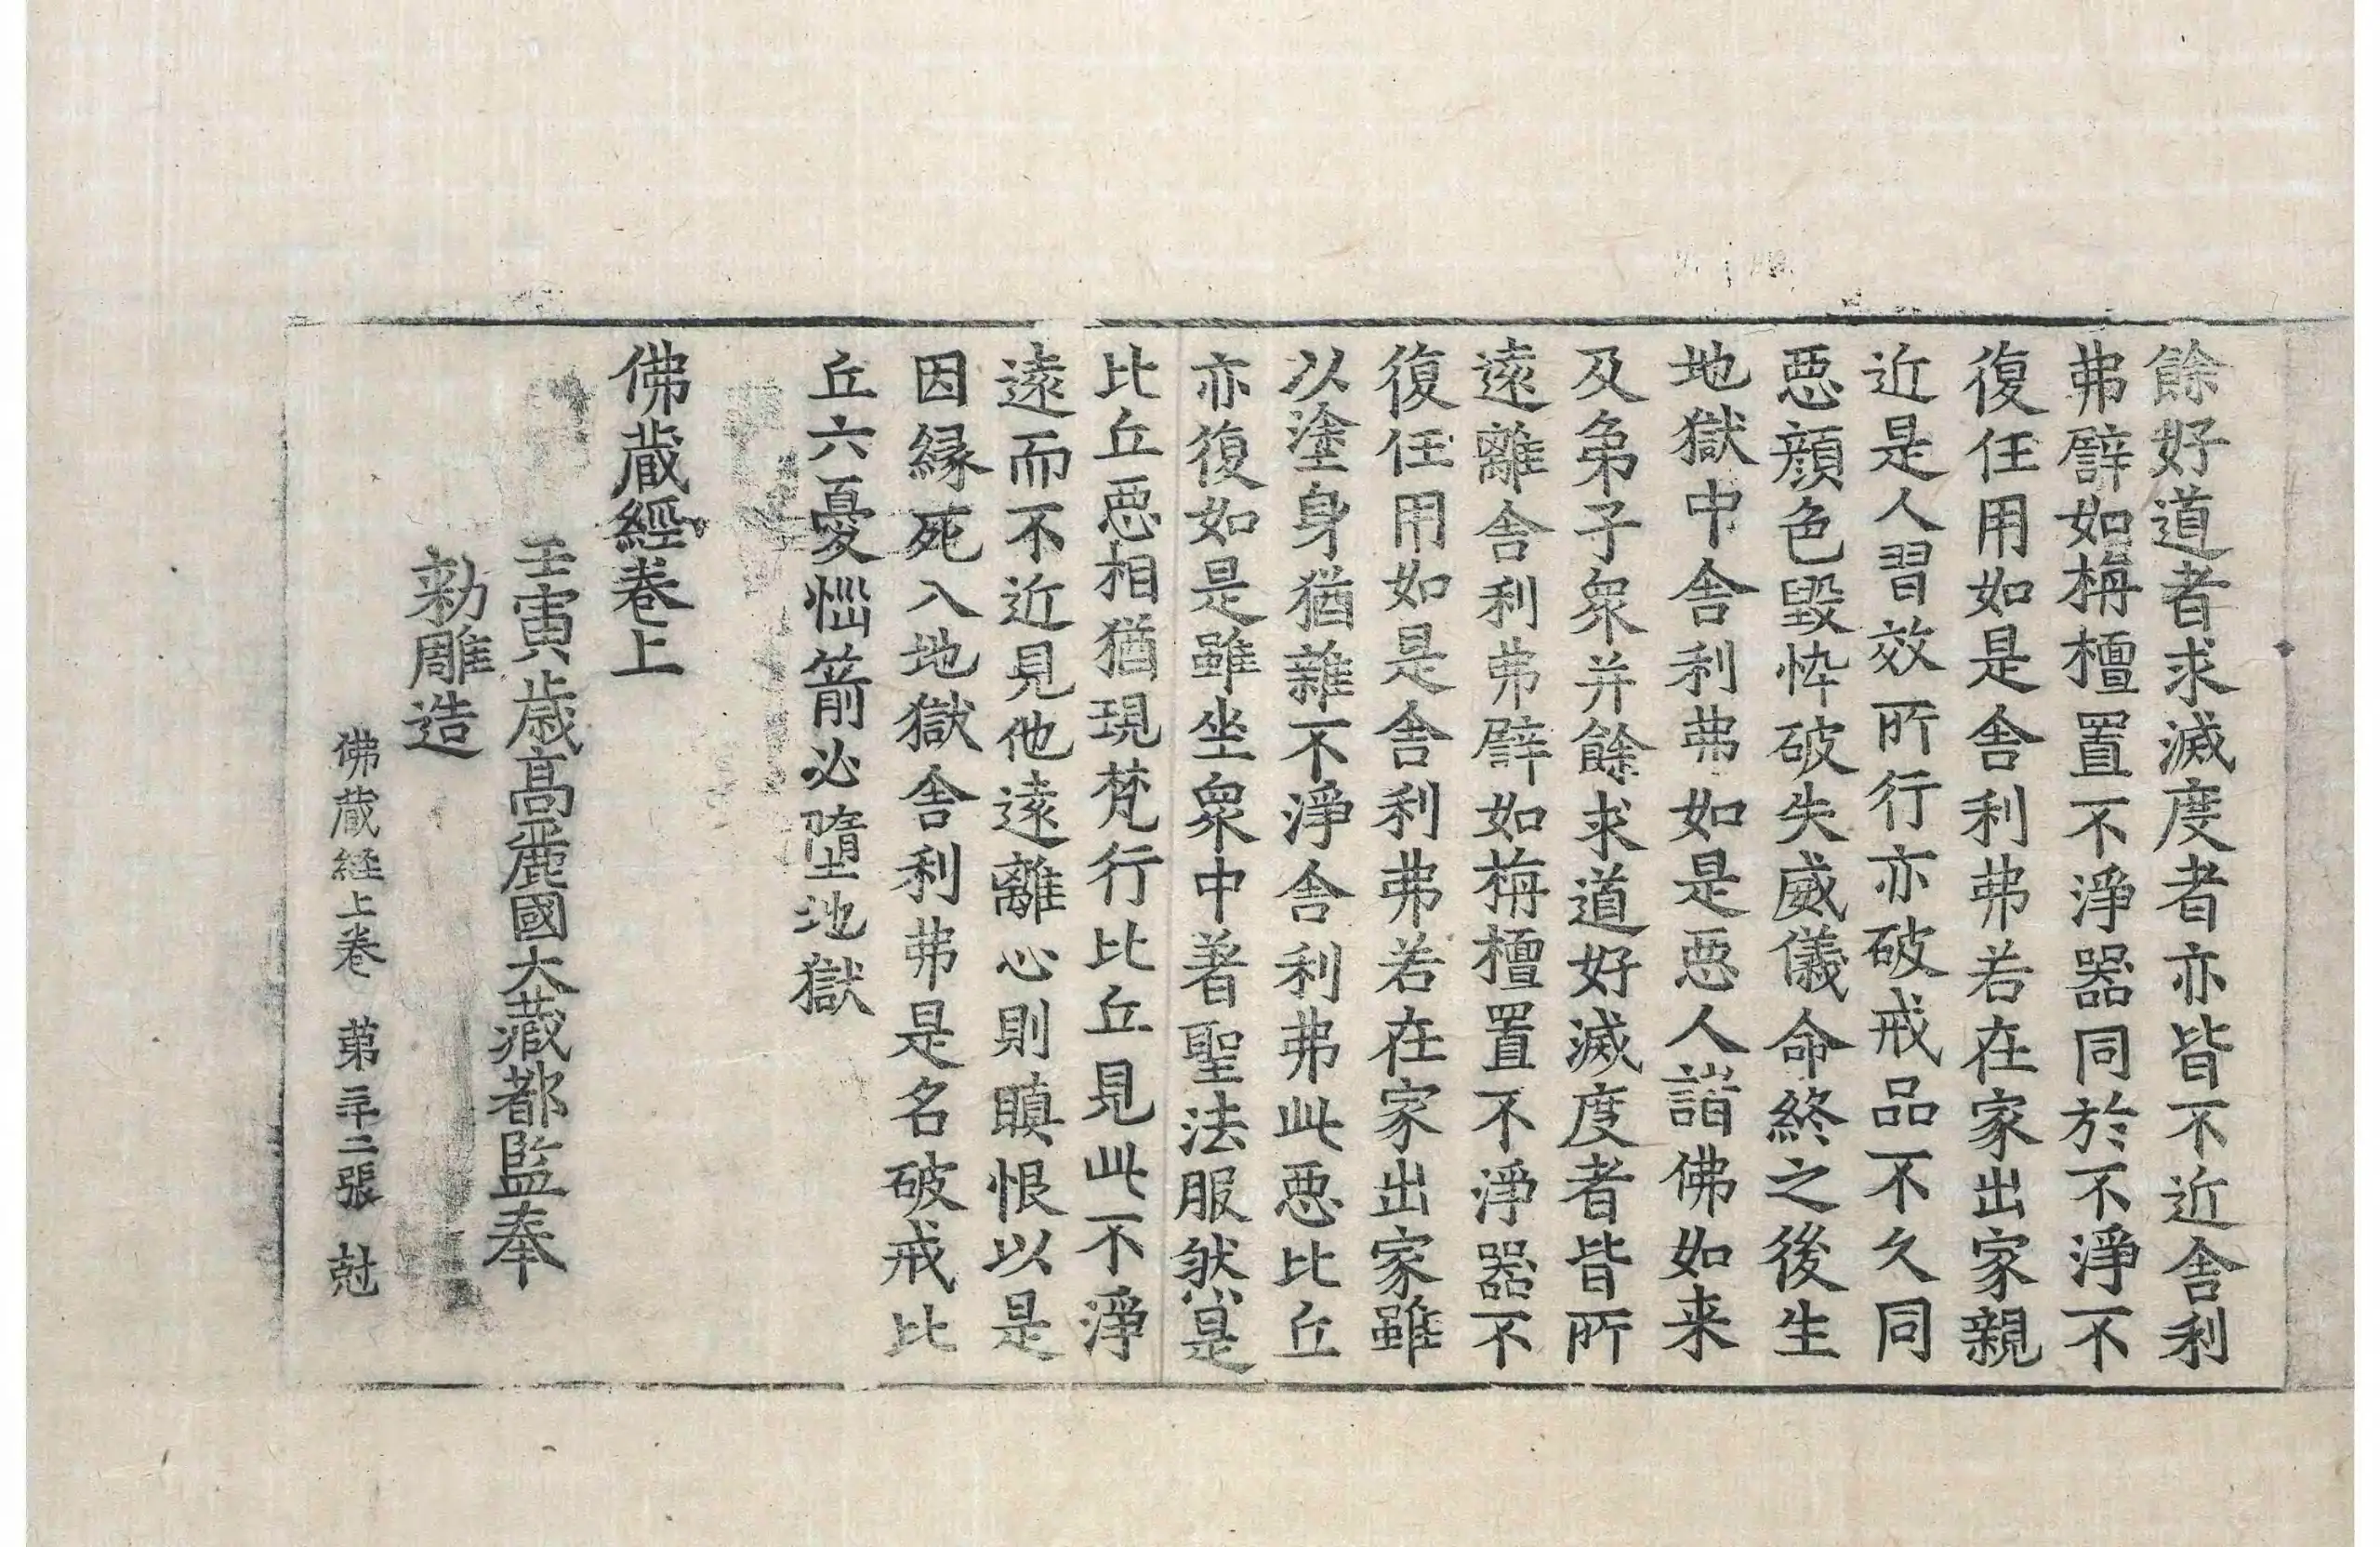 餘好道者求滅度者亦皆不近舎利
弗譬如栴檀置不淨器同於不淨不
復任用如是舎利弗若在家出家親
近是人習效所行亦破戒品不久同
惡顔色毀悴破失威儀命終之後生
地獄中舎利弗如是惡人謗佛如来
及弟子衆并餘求道好滅度者皆所
遠離舎利弗譬如栴檀置不淨器不
復任用如是舎利弗若在家出家雖
以塗身猶雜不淨舎利弗此惡比丘
亦復如是雖坐衆中著聖法服然是
比丘惡相猶現梵行比丘見此不淨
遠而不近見他遠離心則瞋恨以是
因縁死入地獄舎利弗是名破戒比
丘六憂惱箭必墮地獄
佛蔵經巻上
壬寅歳高麗國大藏都監奉
勅雕造
佛蔵経上巻 苐三十二張 尅